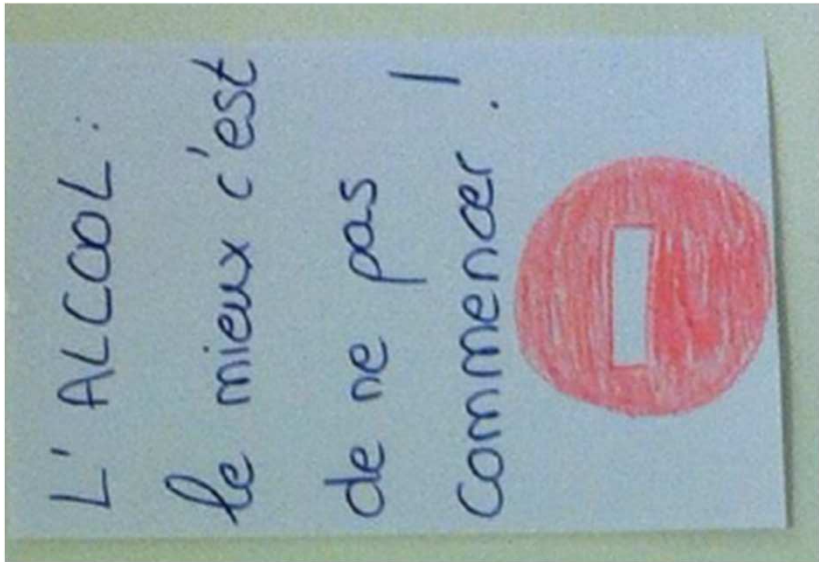 L'ALCOOL :
le mieux c'est
de ne pas
commencer !